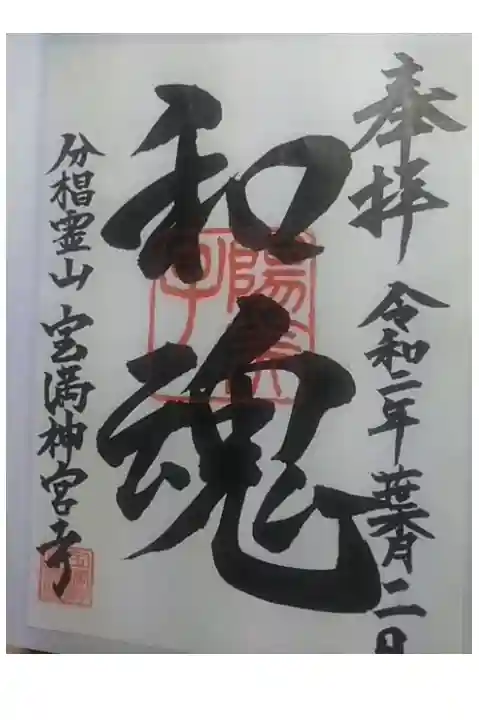 奉拝
令和二年葉月二日
和魂
分椙霊山 宝満神宮寺